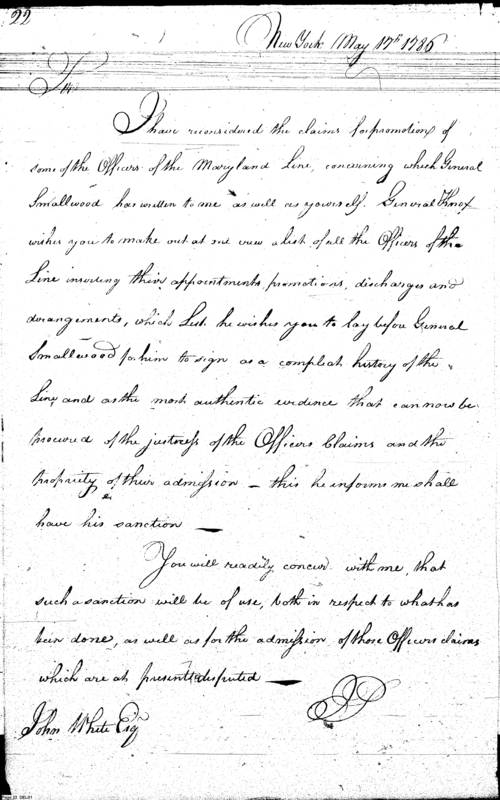 22
New York May 17th 1786
Sir
I have reconsidered the claims for promotion of
some of the Officers of the Maryland Line, concerning which General
Smallwood has written to me as well as yourself. General Knox
wishes you to make out at one view a list of all the Officers of the
Line insuring their appointments, promotions, discharges and
arrangements, which List he wishes you to lay before General
Smallwood for him to sign as a compleat history of the
Line, and as the most authentic evidence that can now be
procured of the justness of the Officers Claims and the
propriety of their admission — this he informs me shall
have his sanction —
You will readily concur with me, that
such a sanction will be of use, both in respect to what has
been done, as well as for the admission of those Officers claims
which are at present disputed —
JP
John White Esqr
Page 22 DEL01